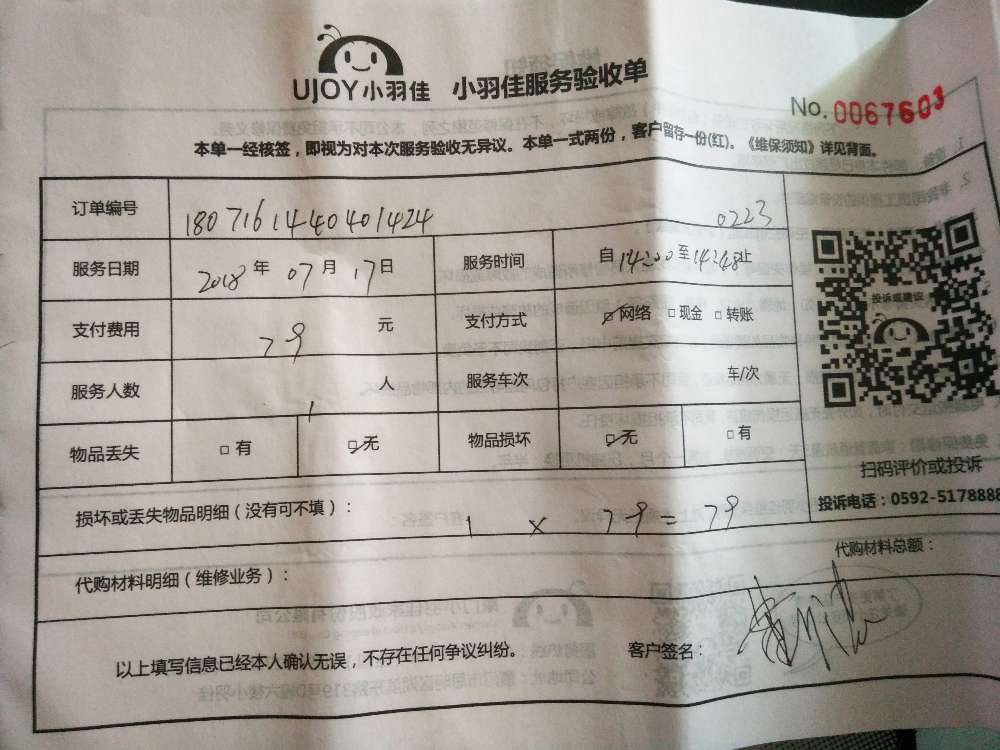 UJOY小羽佳 小羽佳服务验收单
No. 0067603
本单一经核签，即视为对本次服务验收无异议。本单一式两份，客户留存一份(红)。《维保须知》详见背面。
订单编号 180716144040401424 0223
服务日期 2018年07月17日 服务时间 自14:00至14:48止
支付费用 79元 支付方式 ☑网络 □现金 □转账
服务人数 1人 服务车次 车/次
物品丢失 □有 ☑无 物品损坏 ☑无 □有
投诉或建议
扫码评价或投诉
投诉电话：0592-5178888
损坏或丢失物品明细（没有可不填）：
1 × 79=79
代购材料明细（维修业务）： 代购材料总额：
以上填写信息已经本人确认无误，不存在任何争议纠纷。 客户签名：